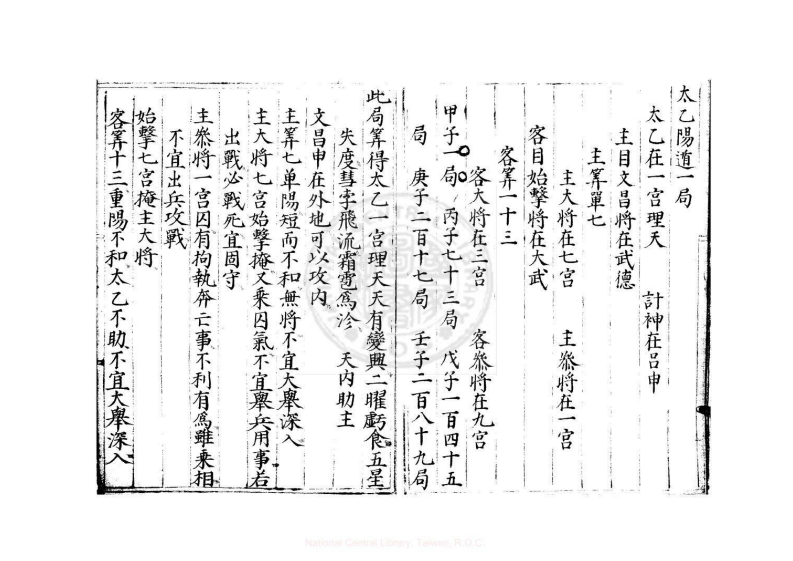 太乙陽道一局
太乙在一宮理天　計神在呂申
主目文昌將在武德
主筭單七
主大將在七宮　主叅將在一宮
客目始擊將在大武
客筭一十三
客大將在三宮　客叅將在九宮
甲子一局　丙子七十三局　戊子一百四十五
局　庚子二百十七局　壬子二百八十九局
此局筭得太乙一宮理天天有變興二曜虧食五星
失度彗孛飛流霜雹為沴　天內助主
文昌申在外地可以攻內
主筭七单陽短而不和無將不宜大舉深入
主大將七宮始擊掩又乘囚氣不宜舉兵用事若
出戰必戰死宜固守
主叅將一宮囚有拘執奔亡事不利有為雖乘相
不宜出兵攻戰
始擊七宮掩主大將
客筭十三重陽不和太乙不助不宜大舉深入
National Central Library, Taiwan, R.O.C.